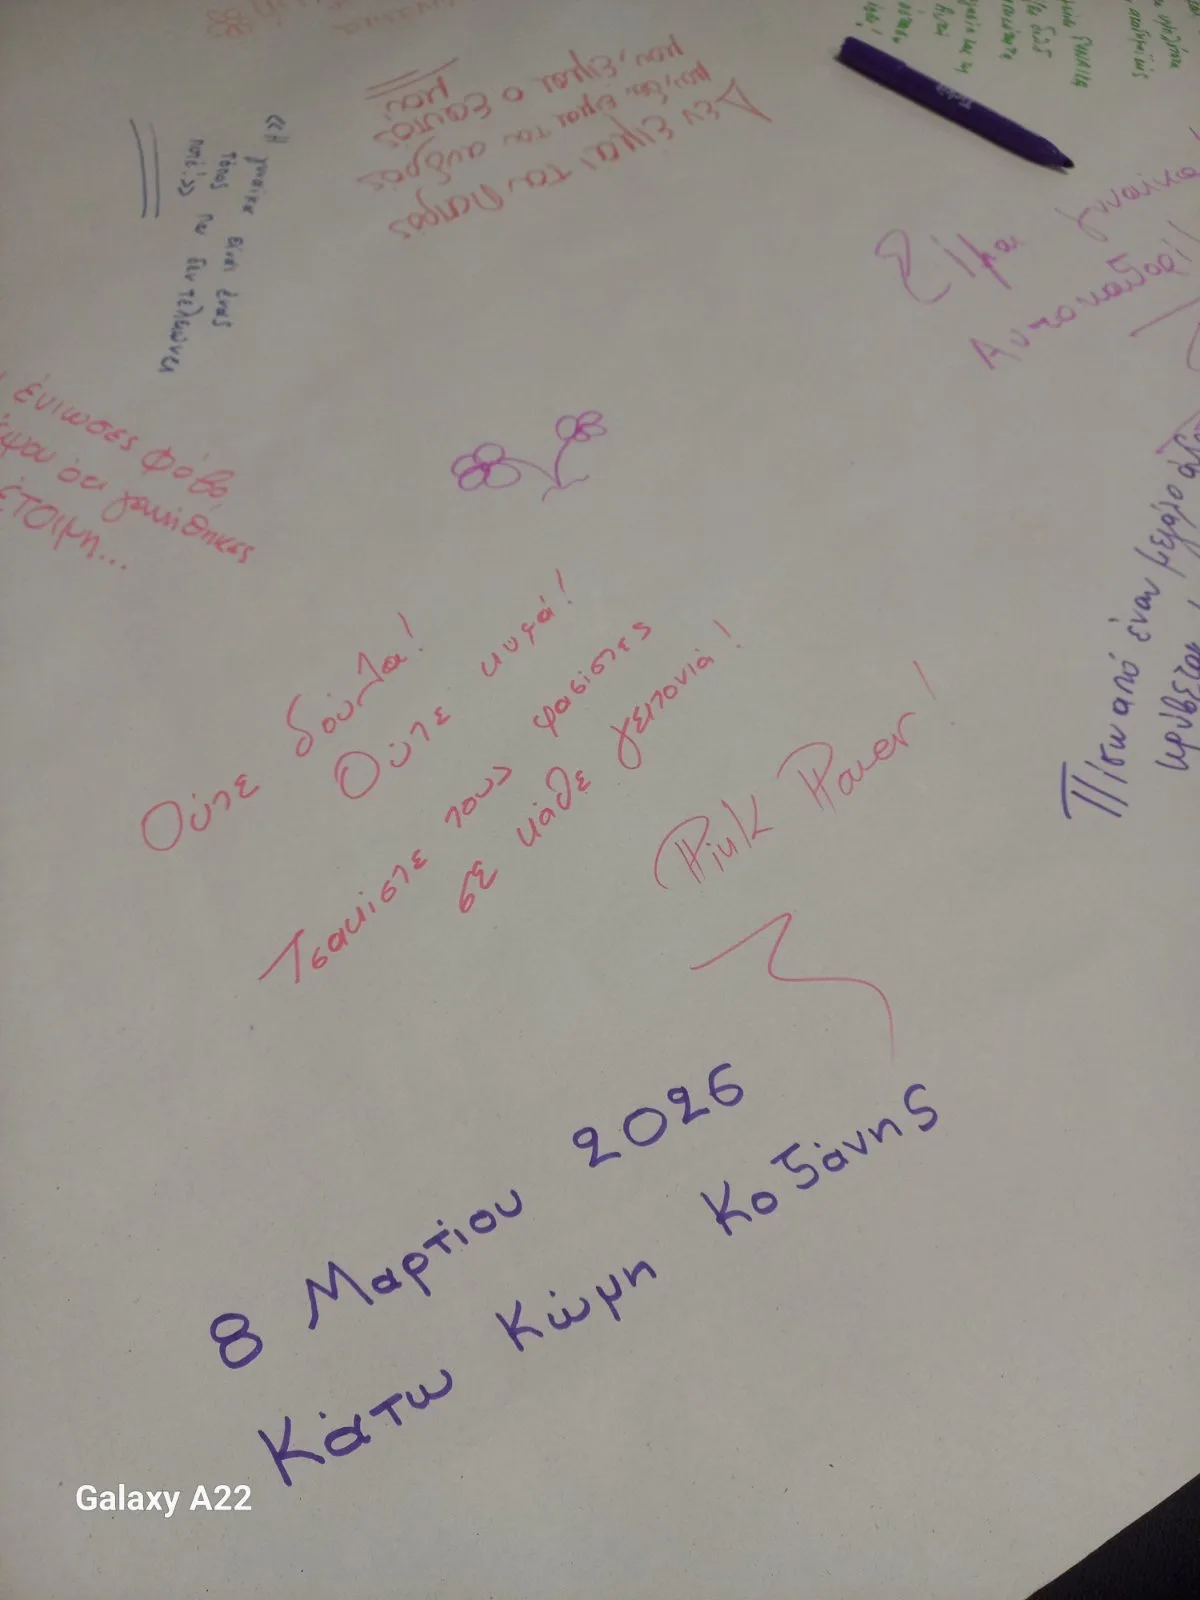 Δεν είμαι του πατρός
μου, δεν είμαι του ανδρός
μου, είμαι ο εαυτός
μου.
«Η γυναίκα είναι ένας
τόπος που δεν τελειώνει
ποτέ.»
Είμαι γυναίκα
Αυτοκαθορί
ένιωσες φόβο
ότι γεννήθηκες
έτοιμη...
Πίσω από έναν μεγάλο
κρύβεται
Ούτε δούλα!
Ούτε κυρά!
Τσακίστε τους φασίστες
σε κάθε γειτονιά!
Pink Power!
8 Μαρτίου 2026
Κάτω Κώμη Κοζάνης
Galaxy A22